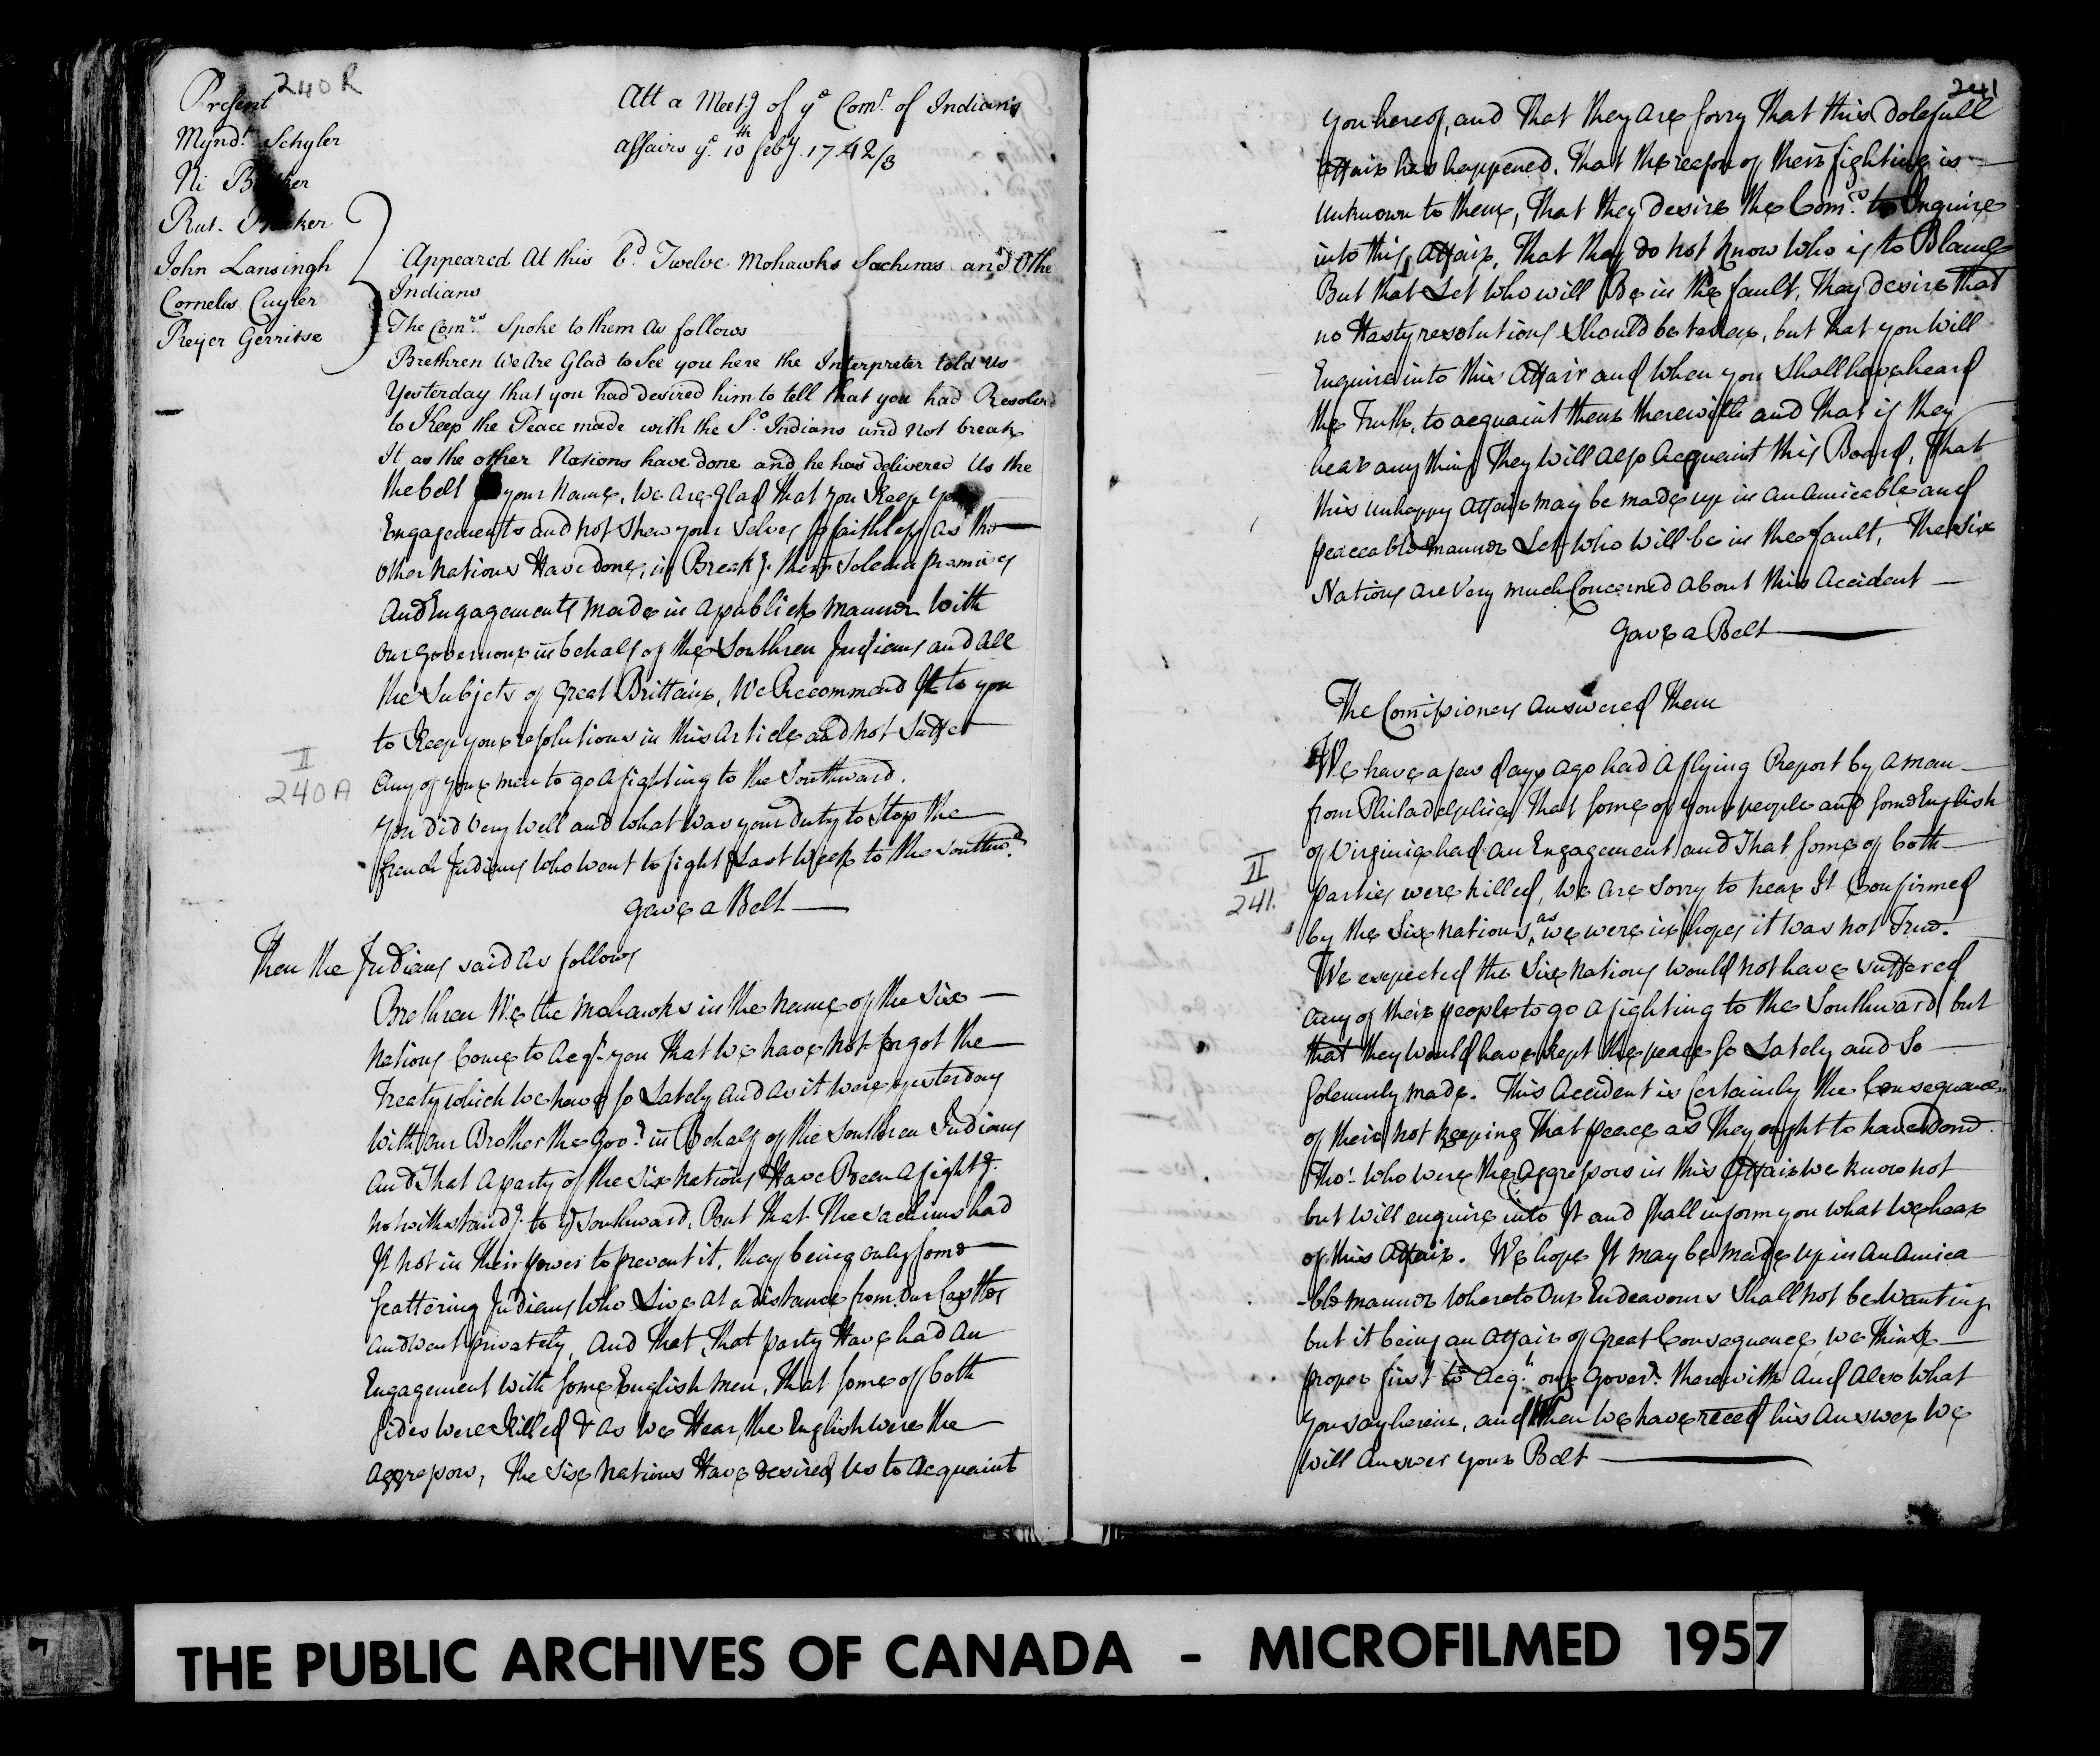 240 R
Present
Mynd.t Schyler
Ni Bleeker
Rut. Bleeker
John Lansingh
Cornelis Cuyler
Reyer Gerritse
Att a Meet.g of y.e Com.r of Indians
affairs y.e 10 th feb.y 1742/3
Appeared At this b.d Twelve Mohawks Sachims and Othe
Indians
The Com.rs Spoke to them as follows
Brethren We Are Glad to See you here the Interpreter told us
Yesterday that you had desired him to tell that you had Resolved
to Keep the Peace made with the S.o Indians and not break
It as the other Nations have done and he has delivered Us the
the belt your Name, We Are Glad that you Keep your
Engagements and not Shew your Selves so faithless as the
other Nations Have done, in Break.g their Solemn promises
And Engagements made in a publick manner with
our Governour in behalf of the Southren Indians and All
the Subjets of Great Brittain, We Recommend It to you
to Keep your resolutions in this Article and not Suffer
II
240 A
Any of your men to go a fighting to the Southward.
You did very well and what was your duty to Stop the
french Indians who went to fight Last Week to the Southw.d
gave a Belt
Then the Indians said as follows
Brethren We the Mohawks in the Name of the Six
Nations Come to Acq.t you That We have not forgot the
Treaty which We have so Lately and as it were yesterday
with our Brother the Gov.r in Behalf of the Southren Indians
And That a party of the Six Nations Have Been a fight.g
notwithstand.g to y.e Southward, But That The Sachims had
It not in their power to prevent it, they being only some
scattering Indians who Live at a distance from Our Castles
and went privately, And That, That party Have had An
Engagement with some English men, That some of both
sides were Killed & as We Hear, the English were the
aggressors, The Six Nations Have desired Us to Acquaint
241
you hereof, and That they Are sorry That this dolefull
affair has happened, That the reason of their fighting is
unknown to them, That they desire the Com.rs to Enquire
into this Affair, That they do not know Who is to Blame
But that Let who will Be in the fault, They desire that
no Hasty resolutions Should be taken, but that you will
Enquire into this Affair and When you Shall have heard
the Truth, to acquaint them therewith and That if they
hear any thing They will also Acquaint this Board, That
this unhappy Affair may be made up in an Amicable and
peaceable manner Let who will be in the fault, The Six
Nations are very much Concerned about this Accident
gave a Belt
The Comissioners Answered Them
We have a few days Ago had a flying Report by a man
from Philadelphia That some of your people and some English
of Virginia had an Engagement and That some of both
II
241.
parties were killed, We Are Sorry to hear It Confirmed
by the Six Nations, as we were in hopes it was not True.
We expected the Six Nations would not have Suffered
any of their people to go a fighting to the Southward, but
that they would have kept the peace so Lately and so
Solemnly made. This Accident is Certainly the Consequence
of their not Keeping That peace as They ought to have done
Tho' who were the Aggressors in this Affair We know not
but will enquire into It and shall inform you what We hear
of this Affair. We hope It may be made Up in An Amica
-ble manner Whereto Our Endeavours Shall not be Wanting
but it being an Affair of Great Consequence, we think
proper first to Acq.t our Gover.r therewith And Also what
You say herein, and When We have reced his Answer We
will Answer your Belt
THE PUBLIC ARCHIVES OF CANADA - MICROFILMED 1957